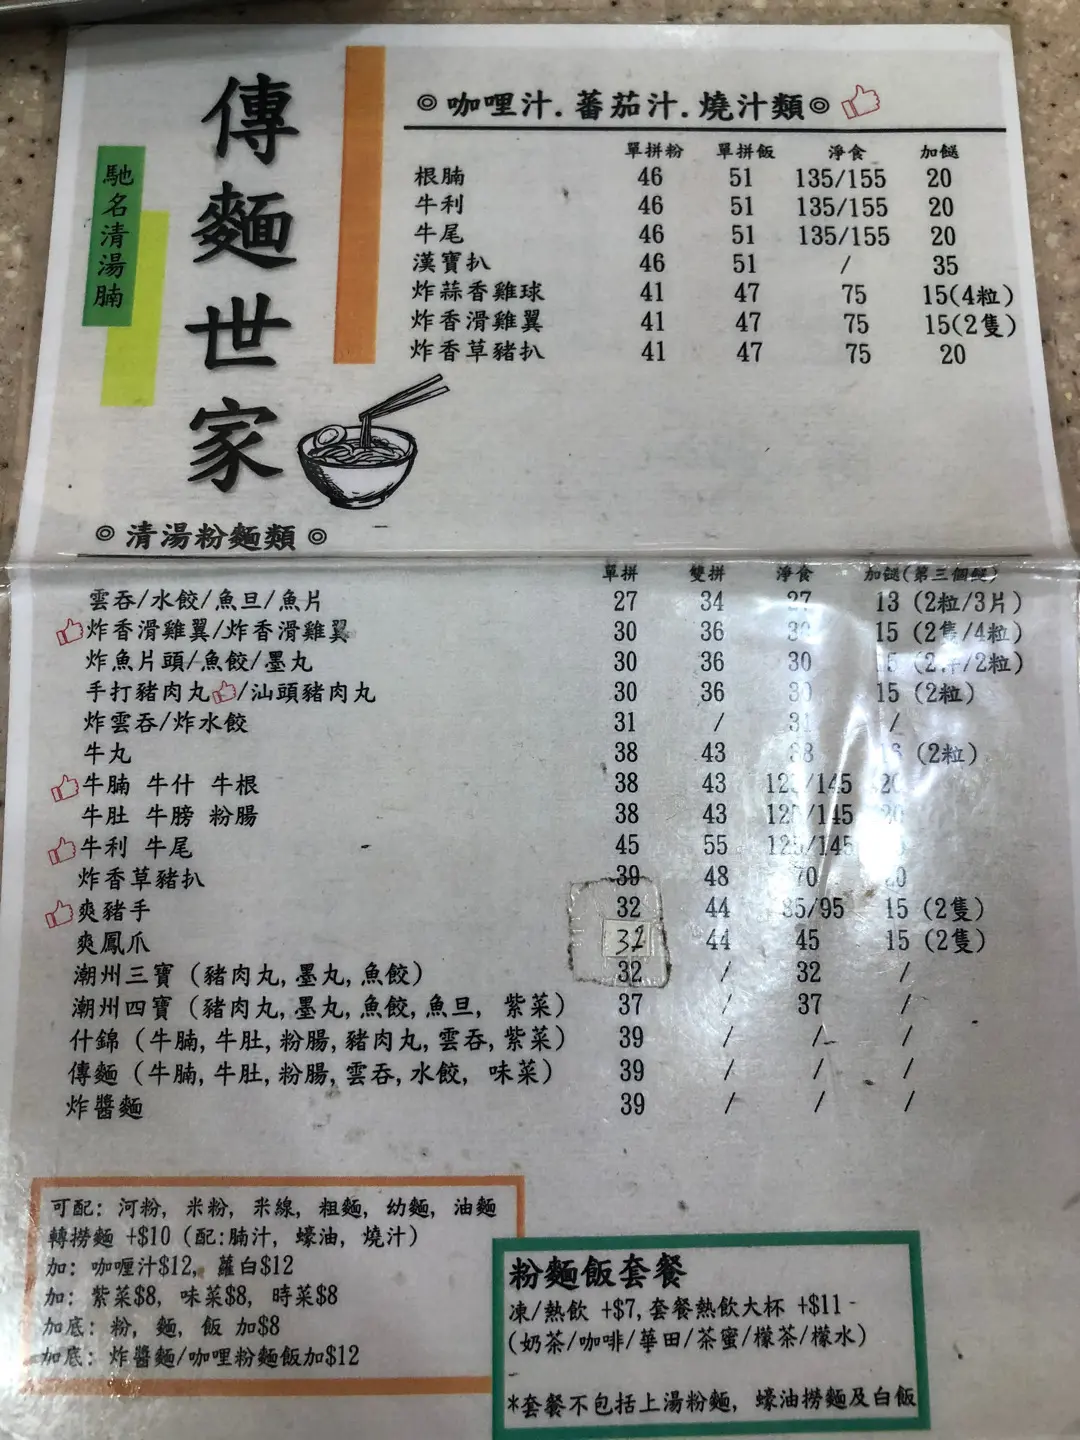 傳麵世家
馳名清湯腩
◎ 咖哩汁.蕃茄汁.燒汁類◎
單拼粉 單拼飯 淨食 加餸
根腩 46 51 135/155 20
牛利 46 51 135/155 20
牛尾 46 51 135/155 20
漢寶扒 46 51 / 35
炸蒜香雞球 41 47 75 15(4粒)
炸香滑雞翼 41 47 75 15(2隻)
炸香草豬扒 41 47 75 20
◎ 清湯粉麵類 ◎
單拼 雙拼 淨食 加餸(第三個餸)
雲吞/水餃/魚旦/魚片 27 34 27 13 (2粒/3片)
炸香滑雞翼/炸香滑雞翼 30 36 15 (2隻/4粒)
炸魚片頭/魚餃/墨丸 30 36 30
手打豬肉丸/汕頭豬肉丸 30 36 30 15 (2粒)
炸雲吞/炸水餃 31 / 31 /
牛丸 38 43 (2粒)
牛腩 牛什 牛根 38 43 125/145 20
牛肚 牛膀 粉腸 38 43 125/145 20
牛利 牛尾 45 55 125/145
炸香草豬扒 39 48 70
爽豬手 32 44 85/95 15 (2隻)
爽鳳爪 32 44 45 15 (2隻)
潮州三寶 (豬肉丸,墨丸,魚餃) 32 / 32 /
潮州四寶 (豬肉丸,墨丸,魚餃,魚旦, 紫菜) 37 / 37 /
什錦 (牛腩,牛肚,粉腸,豬肉丸,雲吞,紫菜) 39 / / /
傳麵 (牛腩,牛肚,粉腸,雲吞,水餃, 味菜) 39 / / /
炸醬麵 39 / / /
可配: 河粉, 米粉, 米線, 粗麵, 幼麵, 油麵
轉撈麵 +$10 (配:腩汁, 蠔油, 燒汁)
加: 咖喱汁$12, 蘿白$12
加: 紫菜$8, 味菜$8, 時菜$8
加底: 粉, 麵, 飯 加$8
加底: 炸醬麵/咖哩粉麵飯加$12
粉麵飯套餐
凍/熱飲 +$7,套餐熱飲大杯 +$11
(奶茶/咖啡/華田/茶蜜/檬茶/檬水)
*套餐不包括上湯粉麵, 蠔油撈麵及白飯